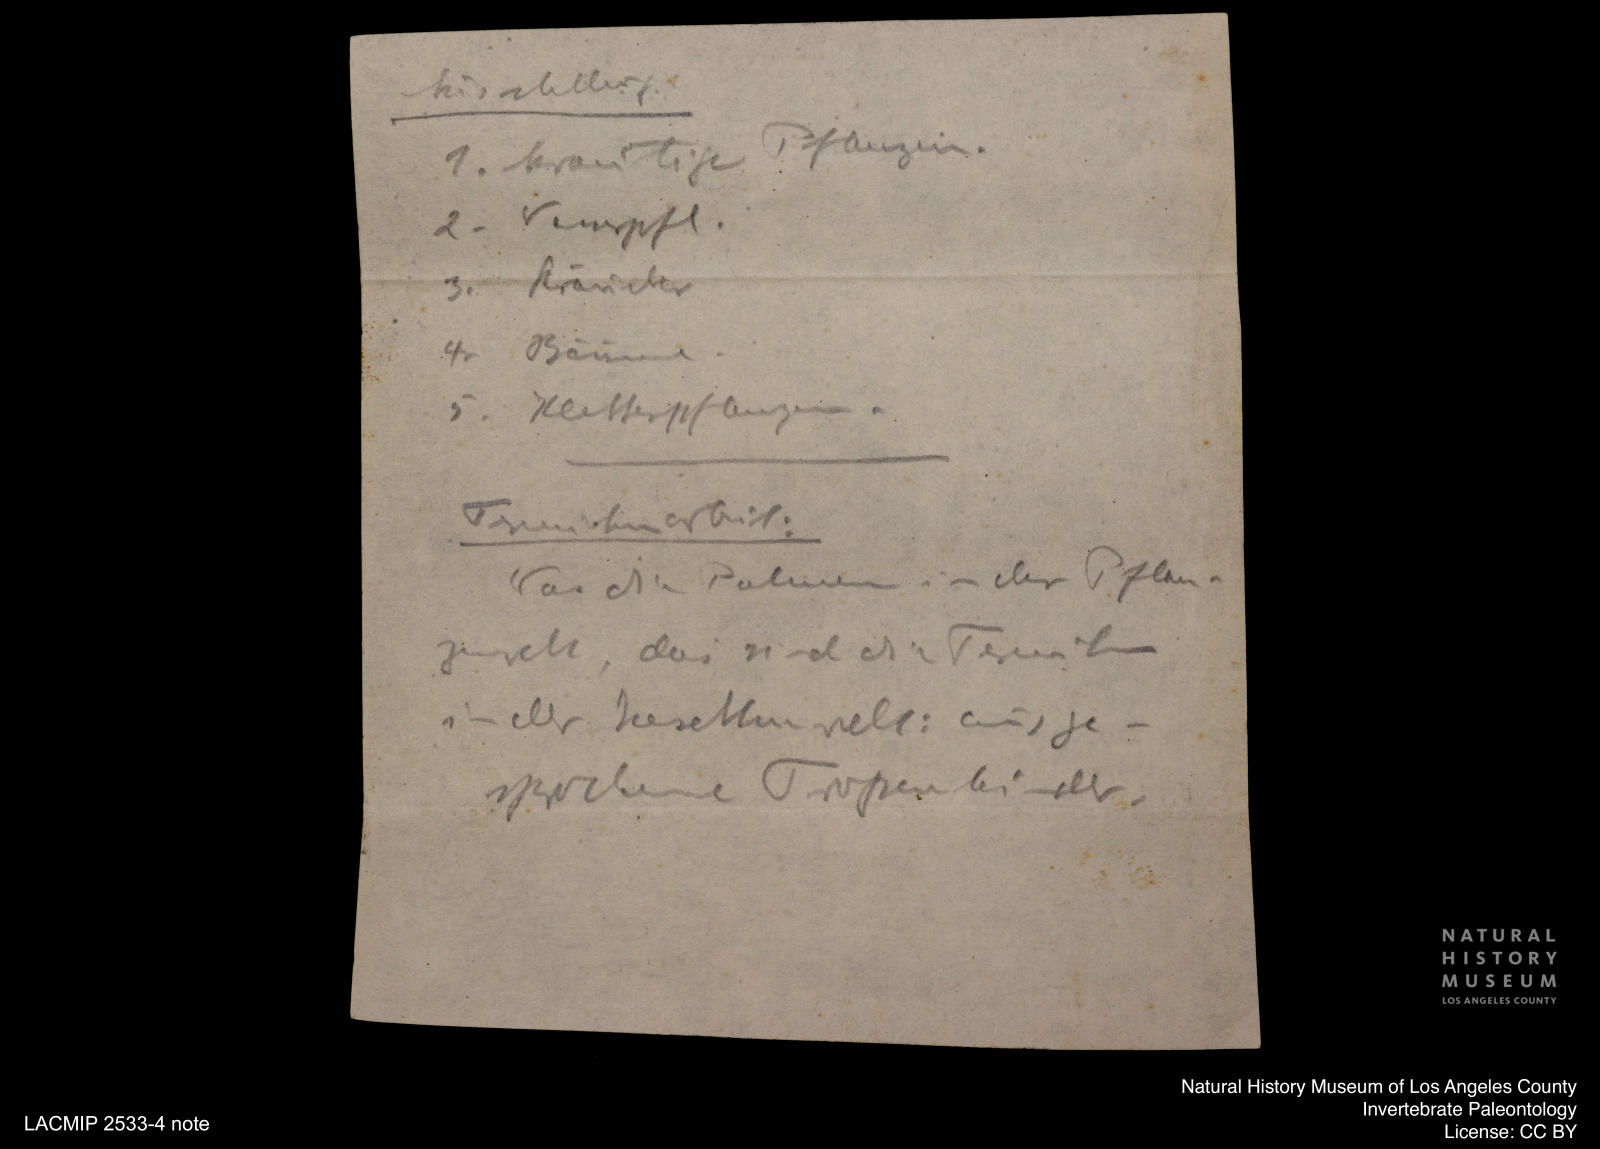 Ausstellung.
1. krautige Pflanzen.
2.
3. Sträucher
4. Bäume.
5. Kletterpflanzen.
Termitenarbeit:
Was die Palmen in der Pflan-
zenwelt, das sind die Termiten
in der Insektenwelt: ausge-
sprochene Tropenkinder.
NATURAL
HISTORY
MUSEUM
LOS ANGELES COUNTY
Natural History Museum of Los Angeles County
Invertebrate Paleontology
License: CC BY
LACMIP 2533-4 note